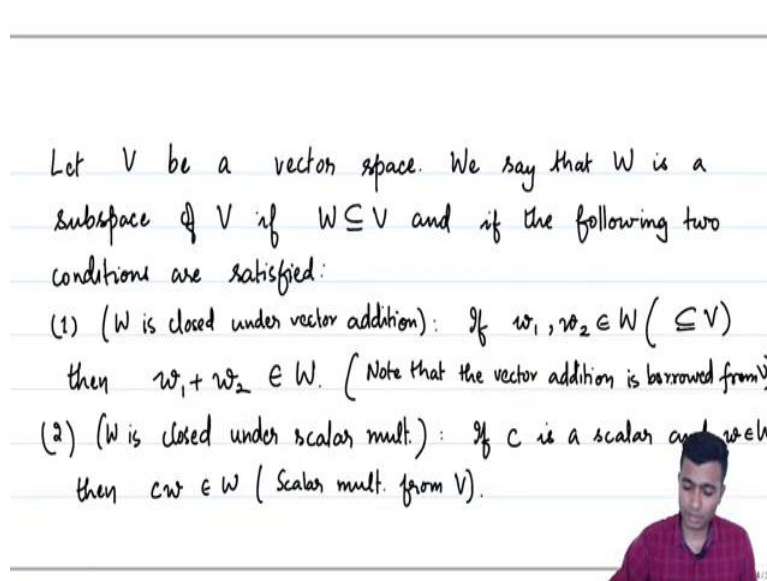 Let V be a vector space. We say that W is a
subspace of V if W ⊆ V and if the following two
conditions are satisfied:
(1) (W is closed under vector addition): If w₁, w₂ ∈ W ( ⊆ V)
then w₁ + w₂ ∈ W. (Note that the vector addition is borrowed from V)
(2) (W is closed under scalar mult.) : If c is a scalar and w ∈ W
then cw ∈ W ( Scalar mult. from V).